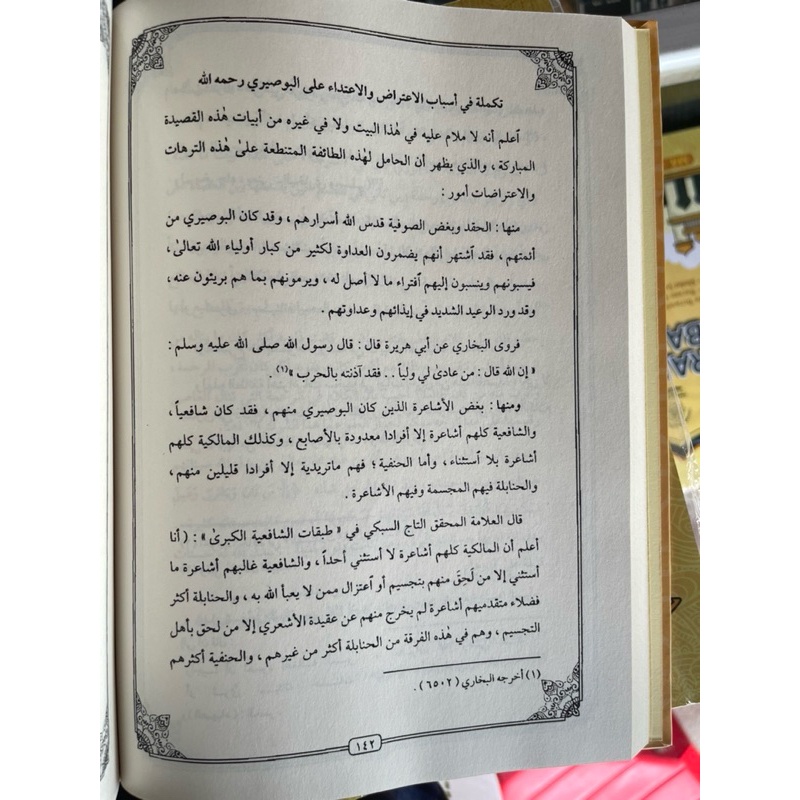 تكملة في أسباب الاعتراض والاعتداء على البوصيري رحمه الله
ٱعلم أنه لا ملام عليه في هٰذا البيت ولا في غيره من أبيات هٰذه القصيدة
المباركة ، والذي يظهر أن الحامل لهٰذه الطائفة المتنطعة علىٰ هٰذه الترهات
والاعتراضات أمور :
منها : الحقد وبغض الصوفية قدس الله أسرارهم ، وقد كان البوصيري من
أئمتهم ، فقد ٱشتهر أنهم يضمرون العداوة لكثير من كبار أولياء الله تعالىٰ ،
فيسبونهم وينسبون إليهم ٱفتراء ما لا أصل له ، ويرمونهم بما هم بريئون عنه ،
وقد ورد الوعيد الشديد في إيذائهم وعداوتهم .
فروى البخاري عن أبي هريرة قال : قال رسول الله صلى الله عليه وسلم :
« إن الله قال : من عادىٰ لي ولياً . . فقد آذنته بالحرب »(١) .
ومنها : بغض الأشاعرة الذين كان البوصيري منهم ، فقد كان شافعياً ،
والشافعية كلهم أشاعرة إلا أفرادا معدودة بالأصابع ، وكذلك المالكية كلهم
أشاعرة بلا ٱستثناء ، وأما الحنفية ؛ فهم ماتريدية إلا أفرادا قليلين منهم ،
والحنابلة فيهم المجسمة وفيهم الأشاعرة .
قال العلامة المحقق التاج السبكي في « طبقات الشافعية الكبرىٰ » : ( أنا
أعلم أن المالكية كلهم أشاعرة لا أستثني أحداً ، والشافعية غالبهم أشاعرة ما
أستثني إلا من لَحِقَ منهم بتجسيم أو ٱعتزال ممن لا يعبأ الله به ، والحنابلة أكثر
فضلاء متقدميهم أشاعرة لم يخرج منهم عن عقيدة الأشعري إلا من لحق بأهل
التجسيم ، وهم في هٰذه الفرقة من الحنابلة أكثر من غيرهم ، والحنفية أكثرهم
(١) أخرجه البخاري (٦٥٠٢) .
١٤٢